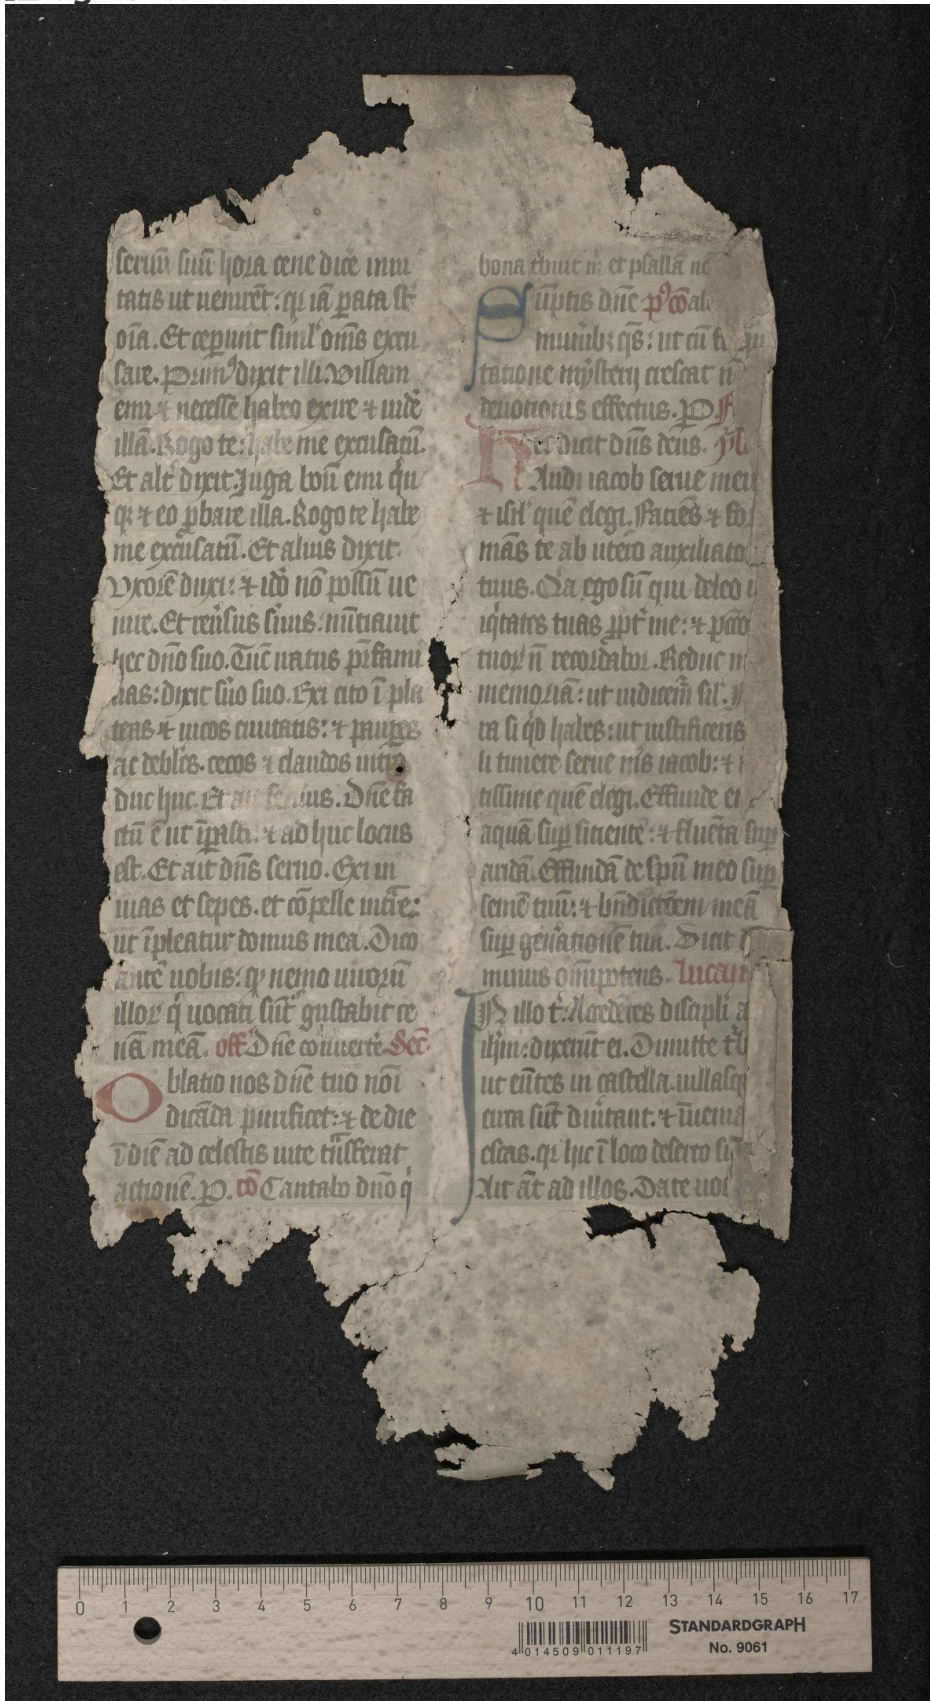 seruū suū hora cene dicē inui
tatis ut uenirēt: qr iā parata sūt
oīa. Et ceperunt simul oms excu
sare. Primus dixit illi. Villam
emi ⁊ necesse habeo exire ⁊ uidē
illā. Rogo te: habe me excusatū.
Et alt dixit. Juga boū emi qn
qz ⁊ eo pbare illa. Rogo te habe
me excusatū. Et alius dixit.
Vxorē duxi: ⁊ iō nō possū ue
nire. Et reusus suus: nūtiauit
hec dno suo. Tūc iratus pr fami
lias: dixit suo suo. Exi cito ī pla
teas ⁊ uicos ciuitatis: ⁊ paupes
ac debiles. cecos ⁊ claudos intro
duc huc. Et ait seruus. Dne fa
ctū ē ut īpasti. ⁊ adhuc locus
est. Et ait dns seruo. Exi in
uias et sepes. et cōpelle intrare:
ut īpleatur domus mea. Dico
autē uobis: q nemo uirorū
illor q uocati sūt gustabit ce
nā meā. off Dne conuerte. Secr
Oblatio nos dne tuo noī
dicāda purificet: ⁊ de die
ī diē ad celestis uite trāsferat
actionē. P. cō Cantabo dno q
bona tbuit m et psallā no
Sūptis dne p cō
munibz qs: ut cū
tatione mysterij crescat n
deuotionis effectus. P
Hec dicit dns deus.
Audi iacob serue meus
⁊ isrl quē elegi. Faciēs ⁊ for
mās te ab utero auxiliator
tuus. Qa ego sū qui deleo
iqitates tuas ppt me: ⁊ pccō
tuor n recordabor. Reduc m
memoriā: ut iudicem sil.
ra si qd habes: ut iustificeris
li timere serue ms iacob: ⁊
tissime quē elegi. Effunde
aquā sup sitiente: ⁊ fluēta sup
aridā. Effundā de spu meo sup
semē tuū: ⁊ bndictōem meā
sup geuationē tuā. Dicit
minus omnipotens. lucam
IN illo t: Accedētes discipli a
ihm: dixerunt ei. Dimitte tb
ut eūtes in castella uillasq
circa sūt diutant. ⁊ īueniā
escas. qr hic ī loco deserto su
Ait āt ad illos. Date uo